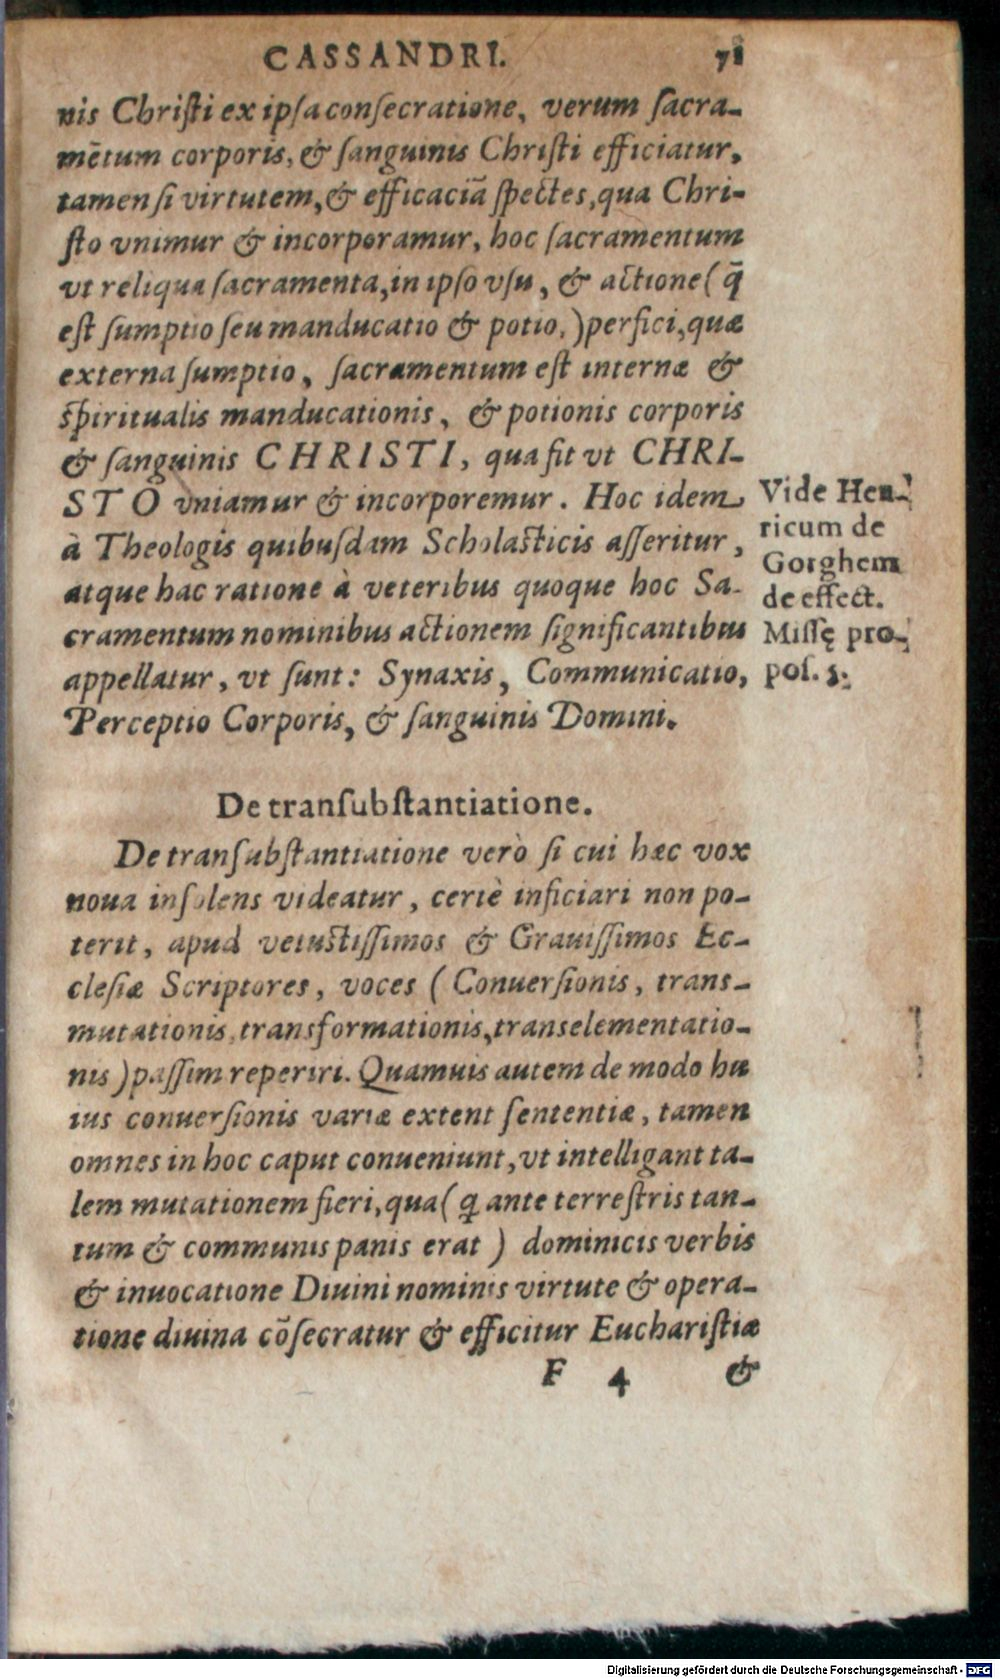 CASSANDRI. 71
nis Chriſti ex ipſa conſecratione, verum ſacra-
mẽtum corporis, & ſanguinis Chriſti efficiatur,
tamen ſi virtutem, & efficaciã ſpectes, qua Chri-
ſto vnimur & incorporamur, hoc ſacramentum
vt reliqua ſacramenta, in ipſo vſu, & actione (q̃
eſt ſumptio ſeu manducatio & potio,) perfici, quæ
externa ſumptio, ſacramentum eſt internæ &
ſpiritualis manducationis, & potionis corporis
& ſanguinis CHRISTI, qua fit vt CHRI-
STO vniamur & incorporemur. Hoc idem
à Theologis quibuſdam Scholaſticis aſſeritur,
atque hac ratione à veteribus quoque hoc Sa-
cramentum nominibus actionem ſignificantibus
appellatur, vt ſunt: Synaxis, Communicatio,
Perceptio Corporis, & ſanguinis Domini.
Vide Hen-
ricum de
Gorghem
de effect.
Miſſę pro-
poſ. 5.
De tranſubſtantiatione.
De tranſubſtantiatione verò ſi cui hæc vox
noua inſolens videatur, certè inficiari non po-
terit, apud vetuſtiſſimos & Grauiſſimos Ec-
cleſiæ Scriptores, voces (Conuerſionis, trans-
mutationis, transformationis, transelementatio-
nis) paſſim reperiri. Quamuis autem de modo hu
ius conuerſionis variæ extent ſententiæ, tamen
omnes in hoc caput conueniunt, vt intelligant ta-
lem mutationem fieri, qua (q ante terreſtris tan-
tum & communis panis erat) dominicis verbis
& inuocatione Diuini nominis virtute & opera-
tione diuina cõſecratur & efficitur Euchariſtiæ
F 4 &
Digitalisierung gefördert durch die Deutsche Forschungsgemeinschaft - DFG